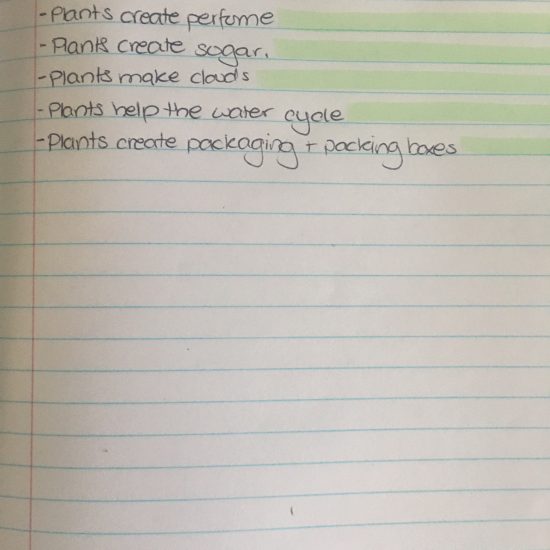 - Plants create perfume
- Plants create sugar.
- Plants make clouds
- Plants help the water cycle
- Plants create packaging + packing boxes